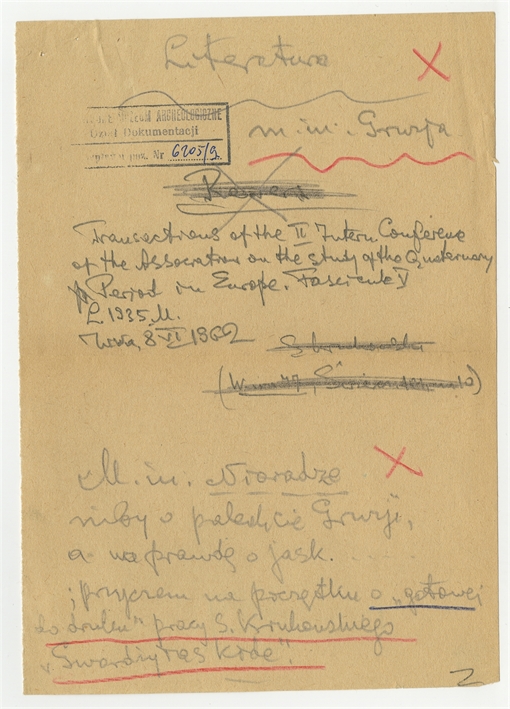 Literatura
MUZEUM ARCHEOLOGICZNE
Dział Dokumentacji
poz. Nr 6205/9
m. in. Gruzja
Transactions of the II Intern. Conference
of the Association on the study of the Quaternary
Period in Europe. Fascicule V
L. 1935. M.
W-wa, 8 VI 1962
M. in. Nioradze
niby o paleolicie Gruzji,
a naprawdę o jask. . . . .
; przyczem na początku o „gotowej
do druku" pracy S. Krukowskiego